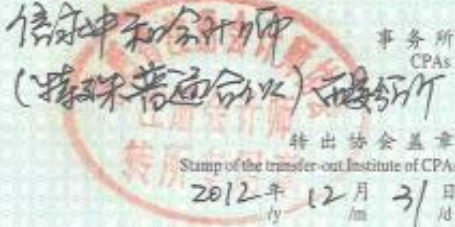 信永中和会计师 事务所
CPAs
(特殊普通合伙)西安分所
转出协会盖章
Stamp of the transfer-out Institute of CPAs
2012年 12月 31日
/y /m /d